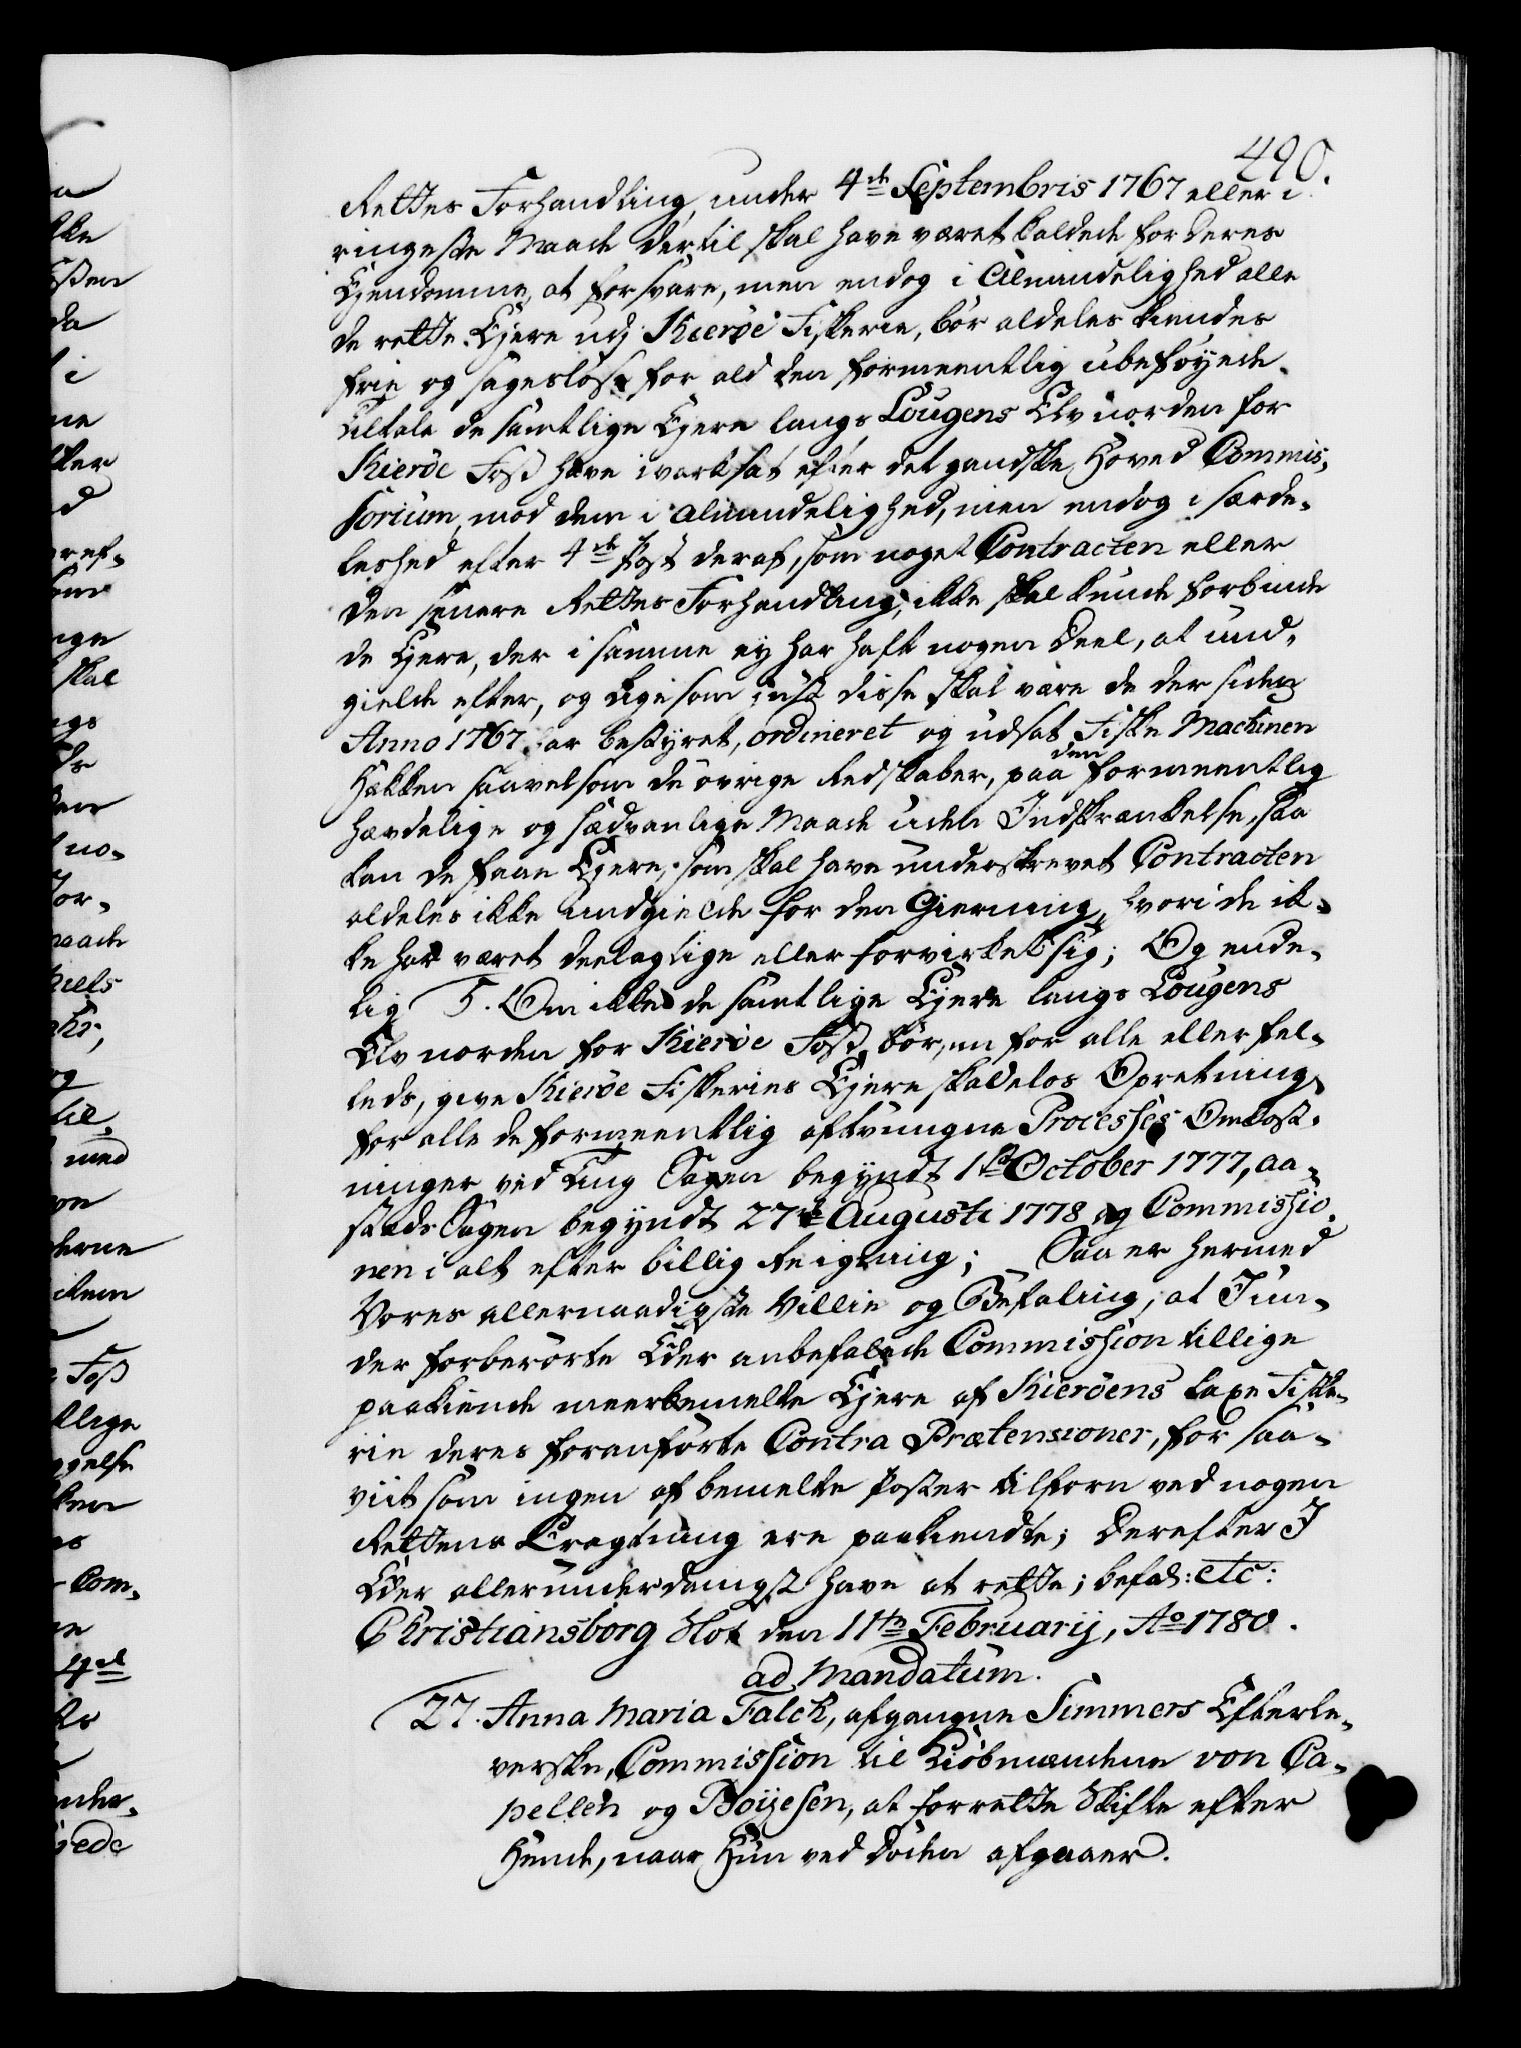 490.
Rettes Forhandling, under 4de Septembris 1767 eller i
ringeste Maade dertil skal have været kaldede for deres
Ejendomme, at forsvare, men endog i Almindelighed alle
de rette Ejere udj Kieröe Fiskerie, bör aldeles kiendes
frie og sageslöse for ald den formeentlig ubeföyede
tiltale de samtlige Ejere langs Lougens Elv norden for
Kieröe Foss have iværksat efter det gandske Hoved Commis-
sorium, mod dem i almindelighed, men endog i særde-
leshed efter 4de Post deraf, som noget Contracten eller
den senere Rettes Forhandling, ikke skal kunde forbinde
de Ejere, der i samme ey har haft nogen Deel, at und-
gielde efter, og ligesom just disse skal være de der siden
Anno 1767 har bestyret, ordineret og udsat Fiske Machinen
Hakken saavelsom de övrige Redskaber, paa den formeentlig
hævdelige og sædvanlige Maade uden Indskrænkelse, saa
kan de faae Ejere, som skal have underskrevet Contracten
aldeles ikke undgielde for den Gierning, hvori de ik-
ke har været deelagtige eller forvirket sig; Og ende-
lig 5. Om ikke de samtlige Ejere langs Lougens
Elv norden for Kieröe Foss, bör, en for alle eller fel-
leds, give Kieröe Fiskeries Ejere skadelos Opretning
for alle de formeentlig aftvungne Processes Omkost-
ninger ved Ting Sagen begyndt 1ste October 1777, Aa-
stæds Sagen begyndt 27de Augusti 1778 og Commissio-
nen i alt efter billig Reigning; Saa er hermed
Vores allernaadigste Villie og Befaling, at I un-
der forberörte Eder anbefalede Commission tillige
paakiende meerbemelte Ejere af Kieröens Laxe Fiske-
rie deres foranförte Contra Prætensioner, for saa-
viit som ingen af bemelte Poster tilforn ved nogen
Rettens Eragtning ere paakiendte; Derefter I
Eder allerunderdanigst have at rette; befal: etc:
Christiansborg Slot den 11te Februarij, Ao 1780.
ad Mandatum.
27. Anna Maria Falck, afgangne Simmers Efterle-
verske, Commission til Kiöbmændene von Ca-
pellen og Boijesen, at forrette Skifte efter
Hende, naar Hun ved Döden afgaaer.